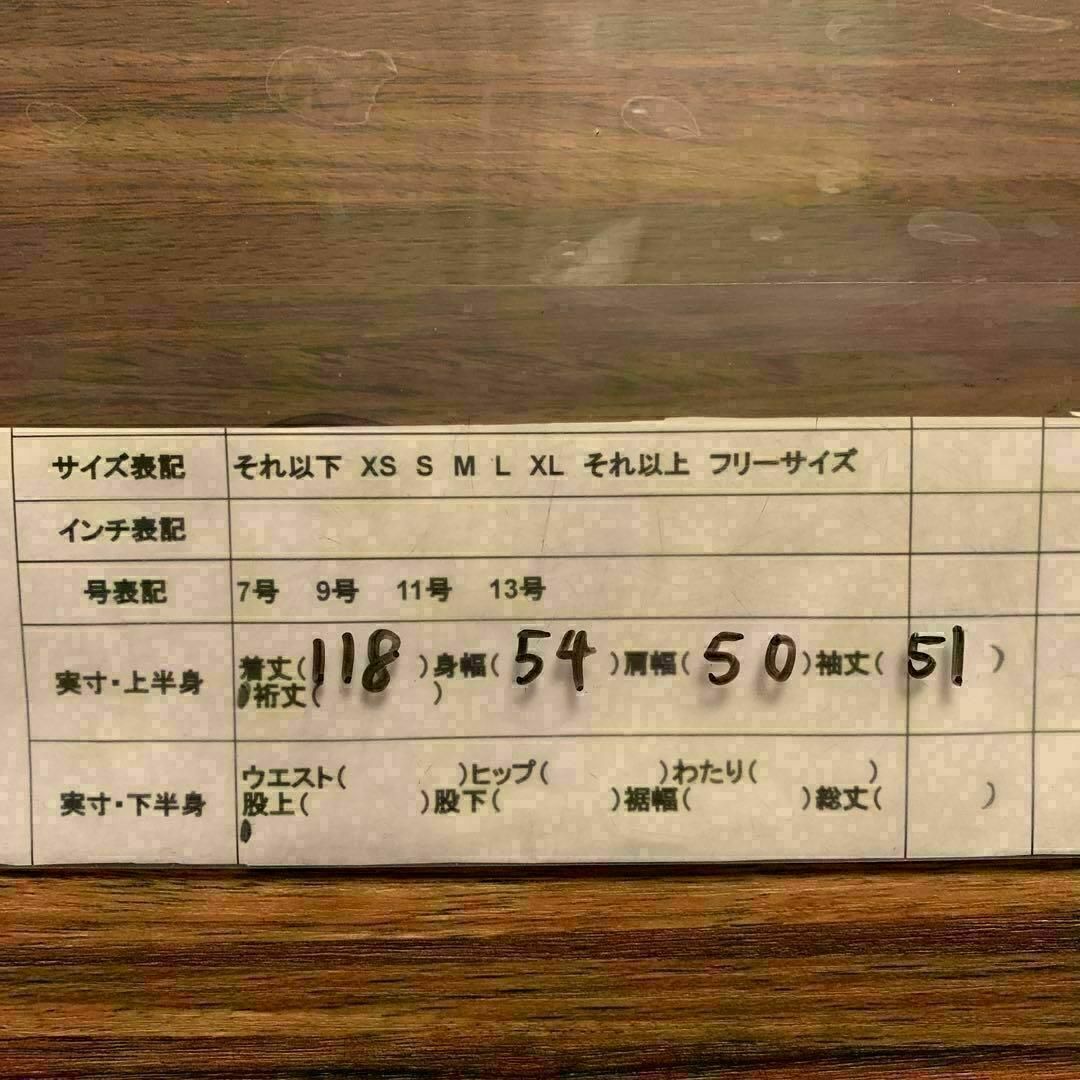 サイズ表記 それ以下 XS S M L XL それ以上 フリーサイズ
インチ表記
号表記 7号 9号 11号 13号
実寸・上半身 着丈(118)身幅(54)肩幅(50)袖丈(51)
裄丈( )
実寸・下半身 ウエスト( )ヒップ( )わたり( )
股上( )股下( )裾幅( )総丈( )